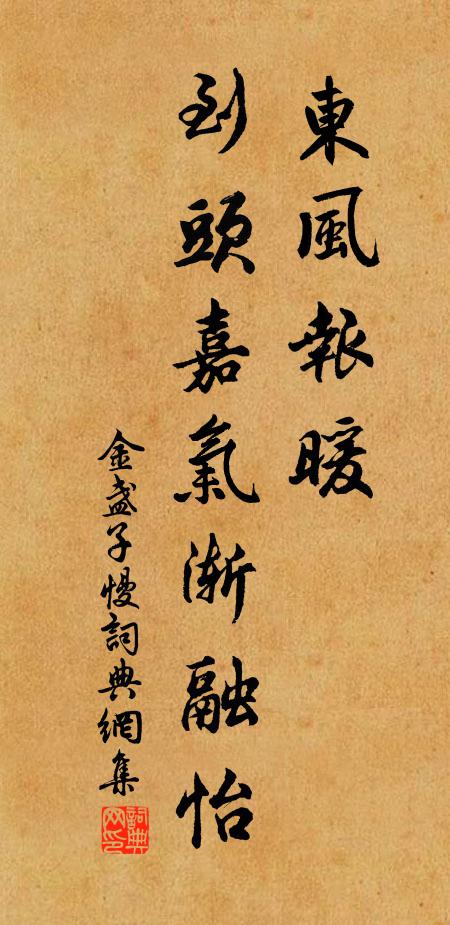 東風報暖
到頭嘉氣漸融怡
金盞子慢詞典網集
詞典網印